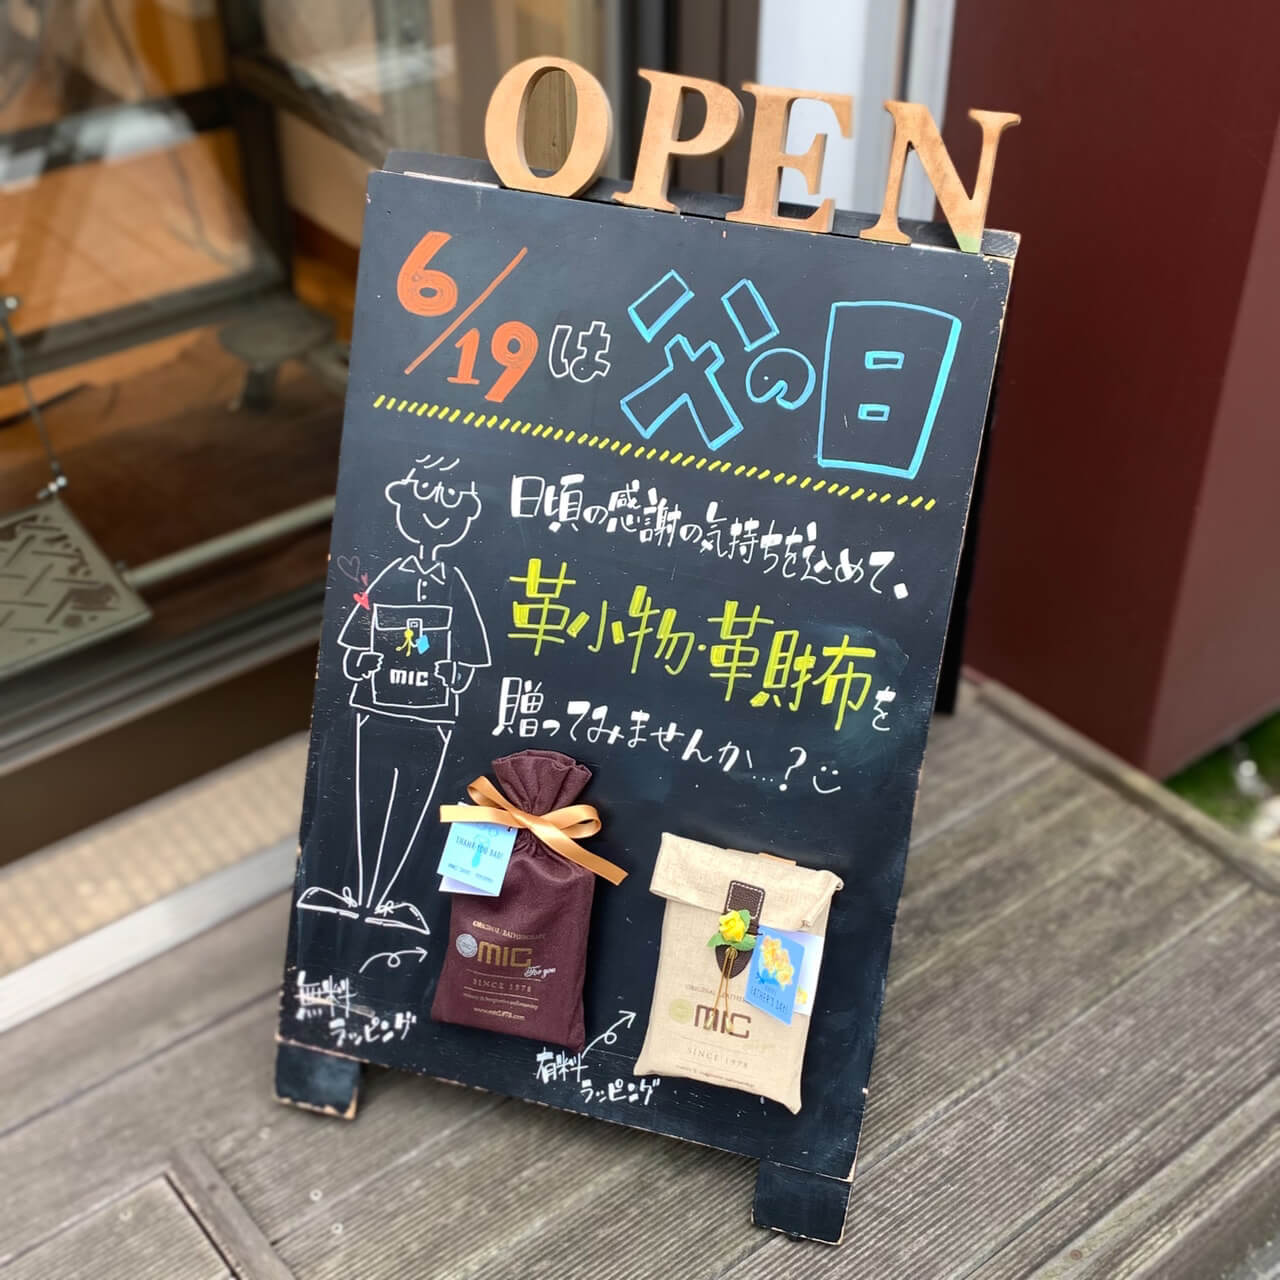 OPEN
6/19は父の日
日頃の感謝の気持ちを込めて、
革小物・革財布を
贈ってみませんか…?
MIC
THANK YOU DAD!
ORIGINAL LEATHERCRAFT
MIC
For you
SINCE 1978
www.mic1978.com
無料
ラッピング
有料
ラッピング
FATHER'S DAY!
MIC
SINCE 1978